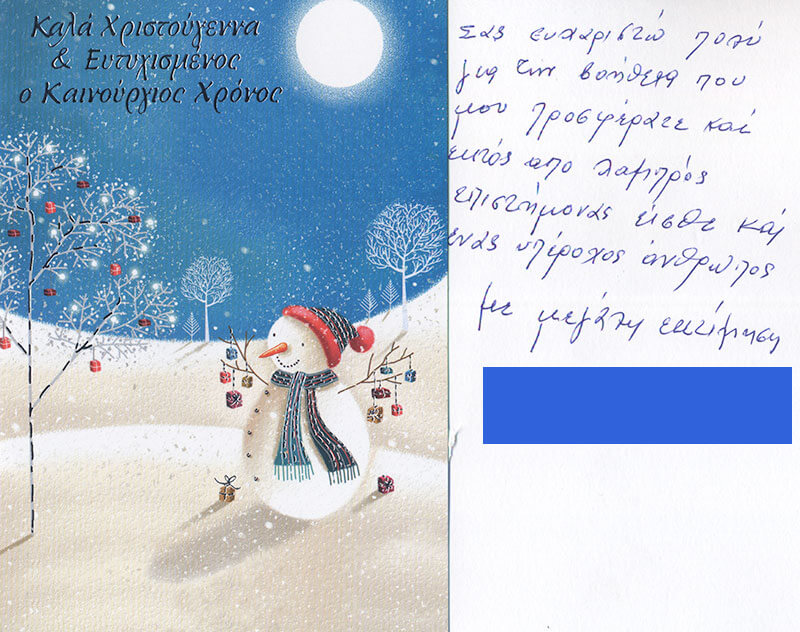 Καλά Χριστούγεννα
& Ευτυχισμένος
ο Καινούργιος Χρόνος
Σας ευχαριστώ πολύ
για την βοήθεια που
μου προσφέρατε και
εκτός απο λαμπρός
επιστήμονας είσθε και
ενας υπέροχος άνθρωπος
με μεγάλη εκτίμηση